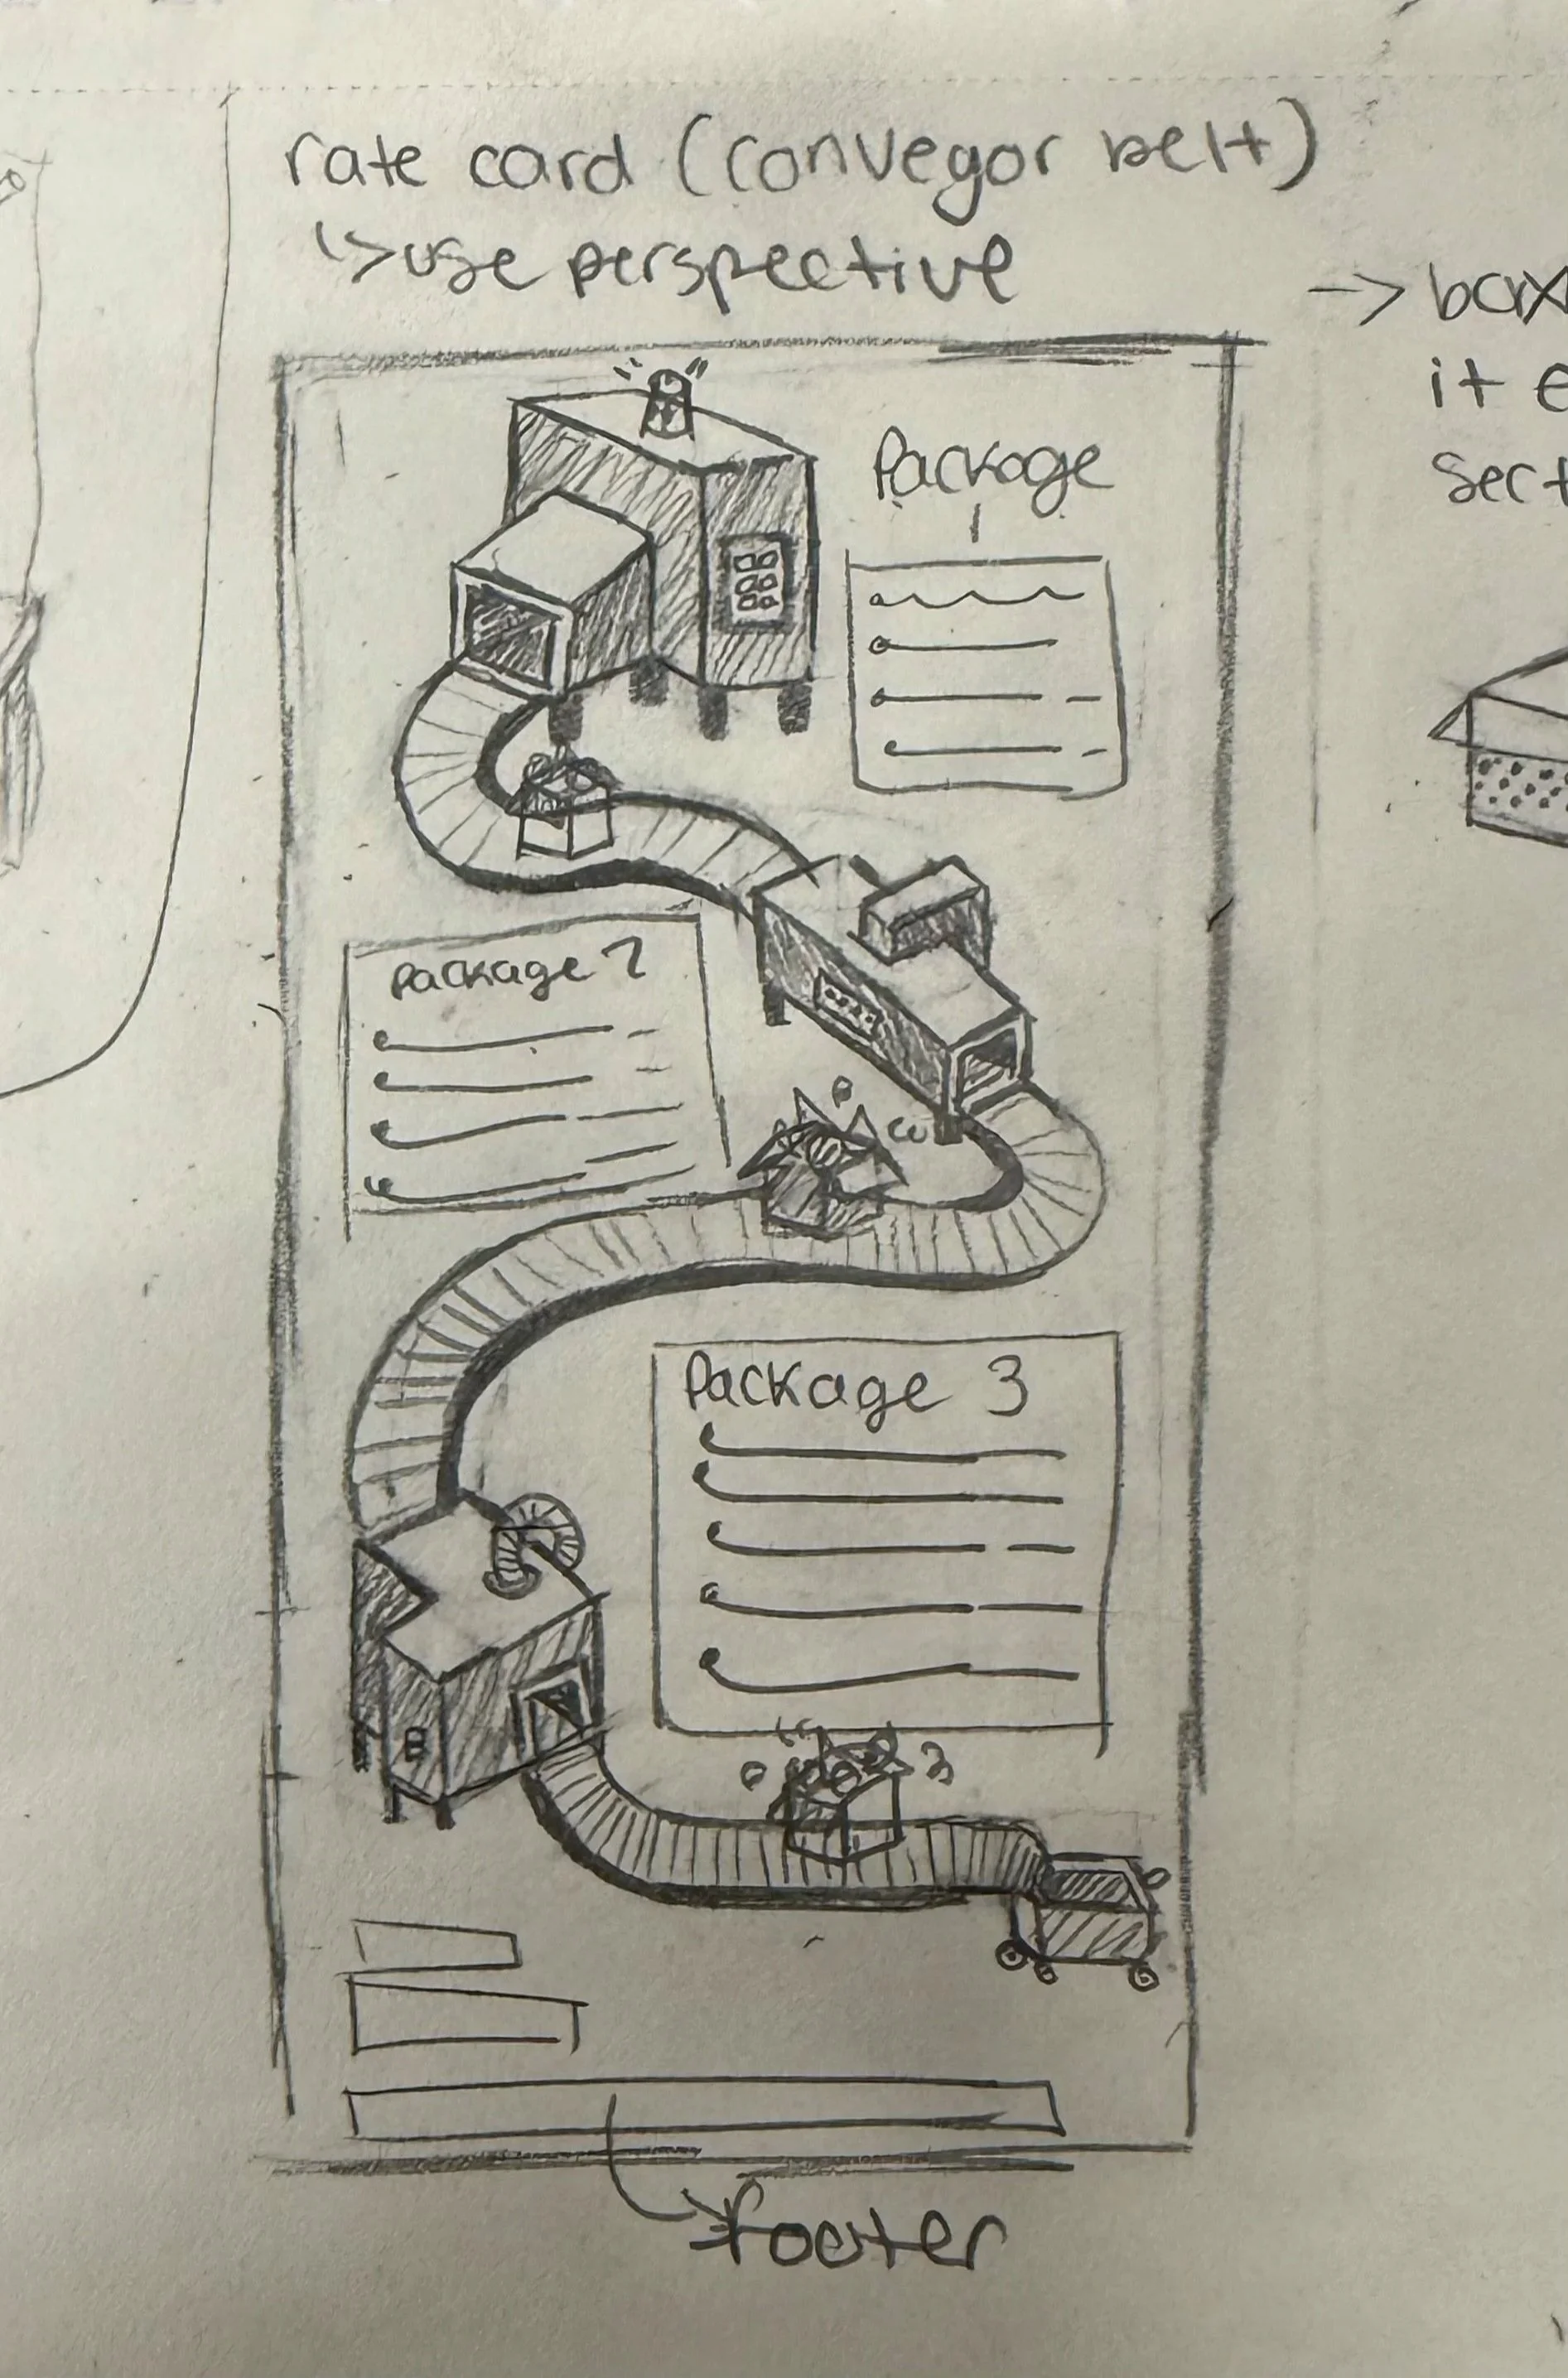 rate card (conveyor belt)
↳ use perspective
→ box
it e
sect
Package
1
Package 2
Package 3
footer